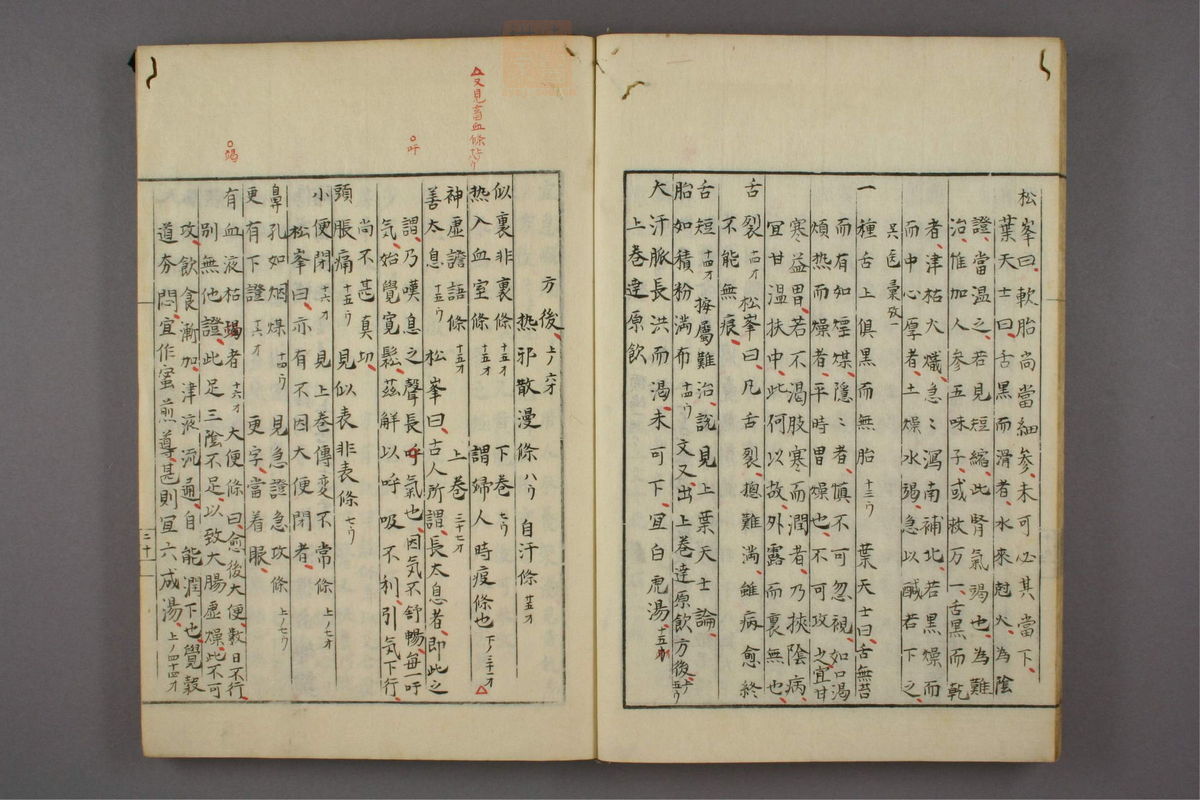 松峯曰軟胎尚當細參未可必其當下
葉天士曰舌黑而滑者水來尅火為陰
證當溫之若見短縮此腎氣竭也為難
治惟加人參五味子或救万一舌黑而乾
者津枯火熾急〻瀉南補北若黑燥而
而中心厚者土燥水竭急以鹹苦下之
一種舌上俱黑而無胎 十三ウ 葉天士曰舌無苔
而有如煙煤隱〻者慎不可忽視如口渴
煩热而燥者平時胃燥也不可攻之宜甘
寒益胃若不渴肢寒而潤者乃挾陰病
宜甘溫扶中此何以故外露而裏無也
舌裂 十四オ 松峯曰凡舌裂摠難満雖病愈終
不能無痕
舌短 十四オ 按屬難治說見上葉天士論
胎如積粉満布 十四ウ 文又出上巻達原飲方後
大汗脈長洪而渴未可下宜白虎湯
上巻達原飲
方後 上ノ六オ 热邪散漫條 八ウ 自汗條 廿五オ
似裏非裏條 十五オ 下巻 七ウ
热入血室條 十五オ 謂婦人時疫條也 下ノ三十オ △
神虛譫語條 十五オ 上巻 三十七オ
善太息 十五ウ 松峯曰古人所謂長太息者即此之
謂乃嘆息之聲長呼氣也因気不舒暢每一吁
気始覺寬鬆茲解以呼吸不利引気下行
尚不甚真切
頭脹痛 十五ウ 見似表非表條 七ウ
小便閉 十六オ 見上巻傳変不常條 上ノ七オ
松峯曰亦有不因大便閉者
鼻孔如烟煤 十四ウ 見急證急攻條 上ノ七ウ
更有下證 更字當着眼
有血液枯竭者 十六オ 大便條曰愈後大便数日不行
別無他證此足三陰不足以致大腸虛燥此不可
攻飲食漸加津液流通自能潤下也覺穀
道夯悶宜作蜜煎導甚則宜六成湯 上ノ四十四オ
三十一
△又見畜血條
○吁
○竭